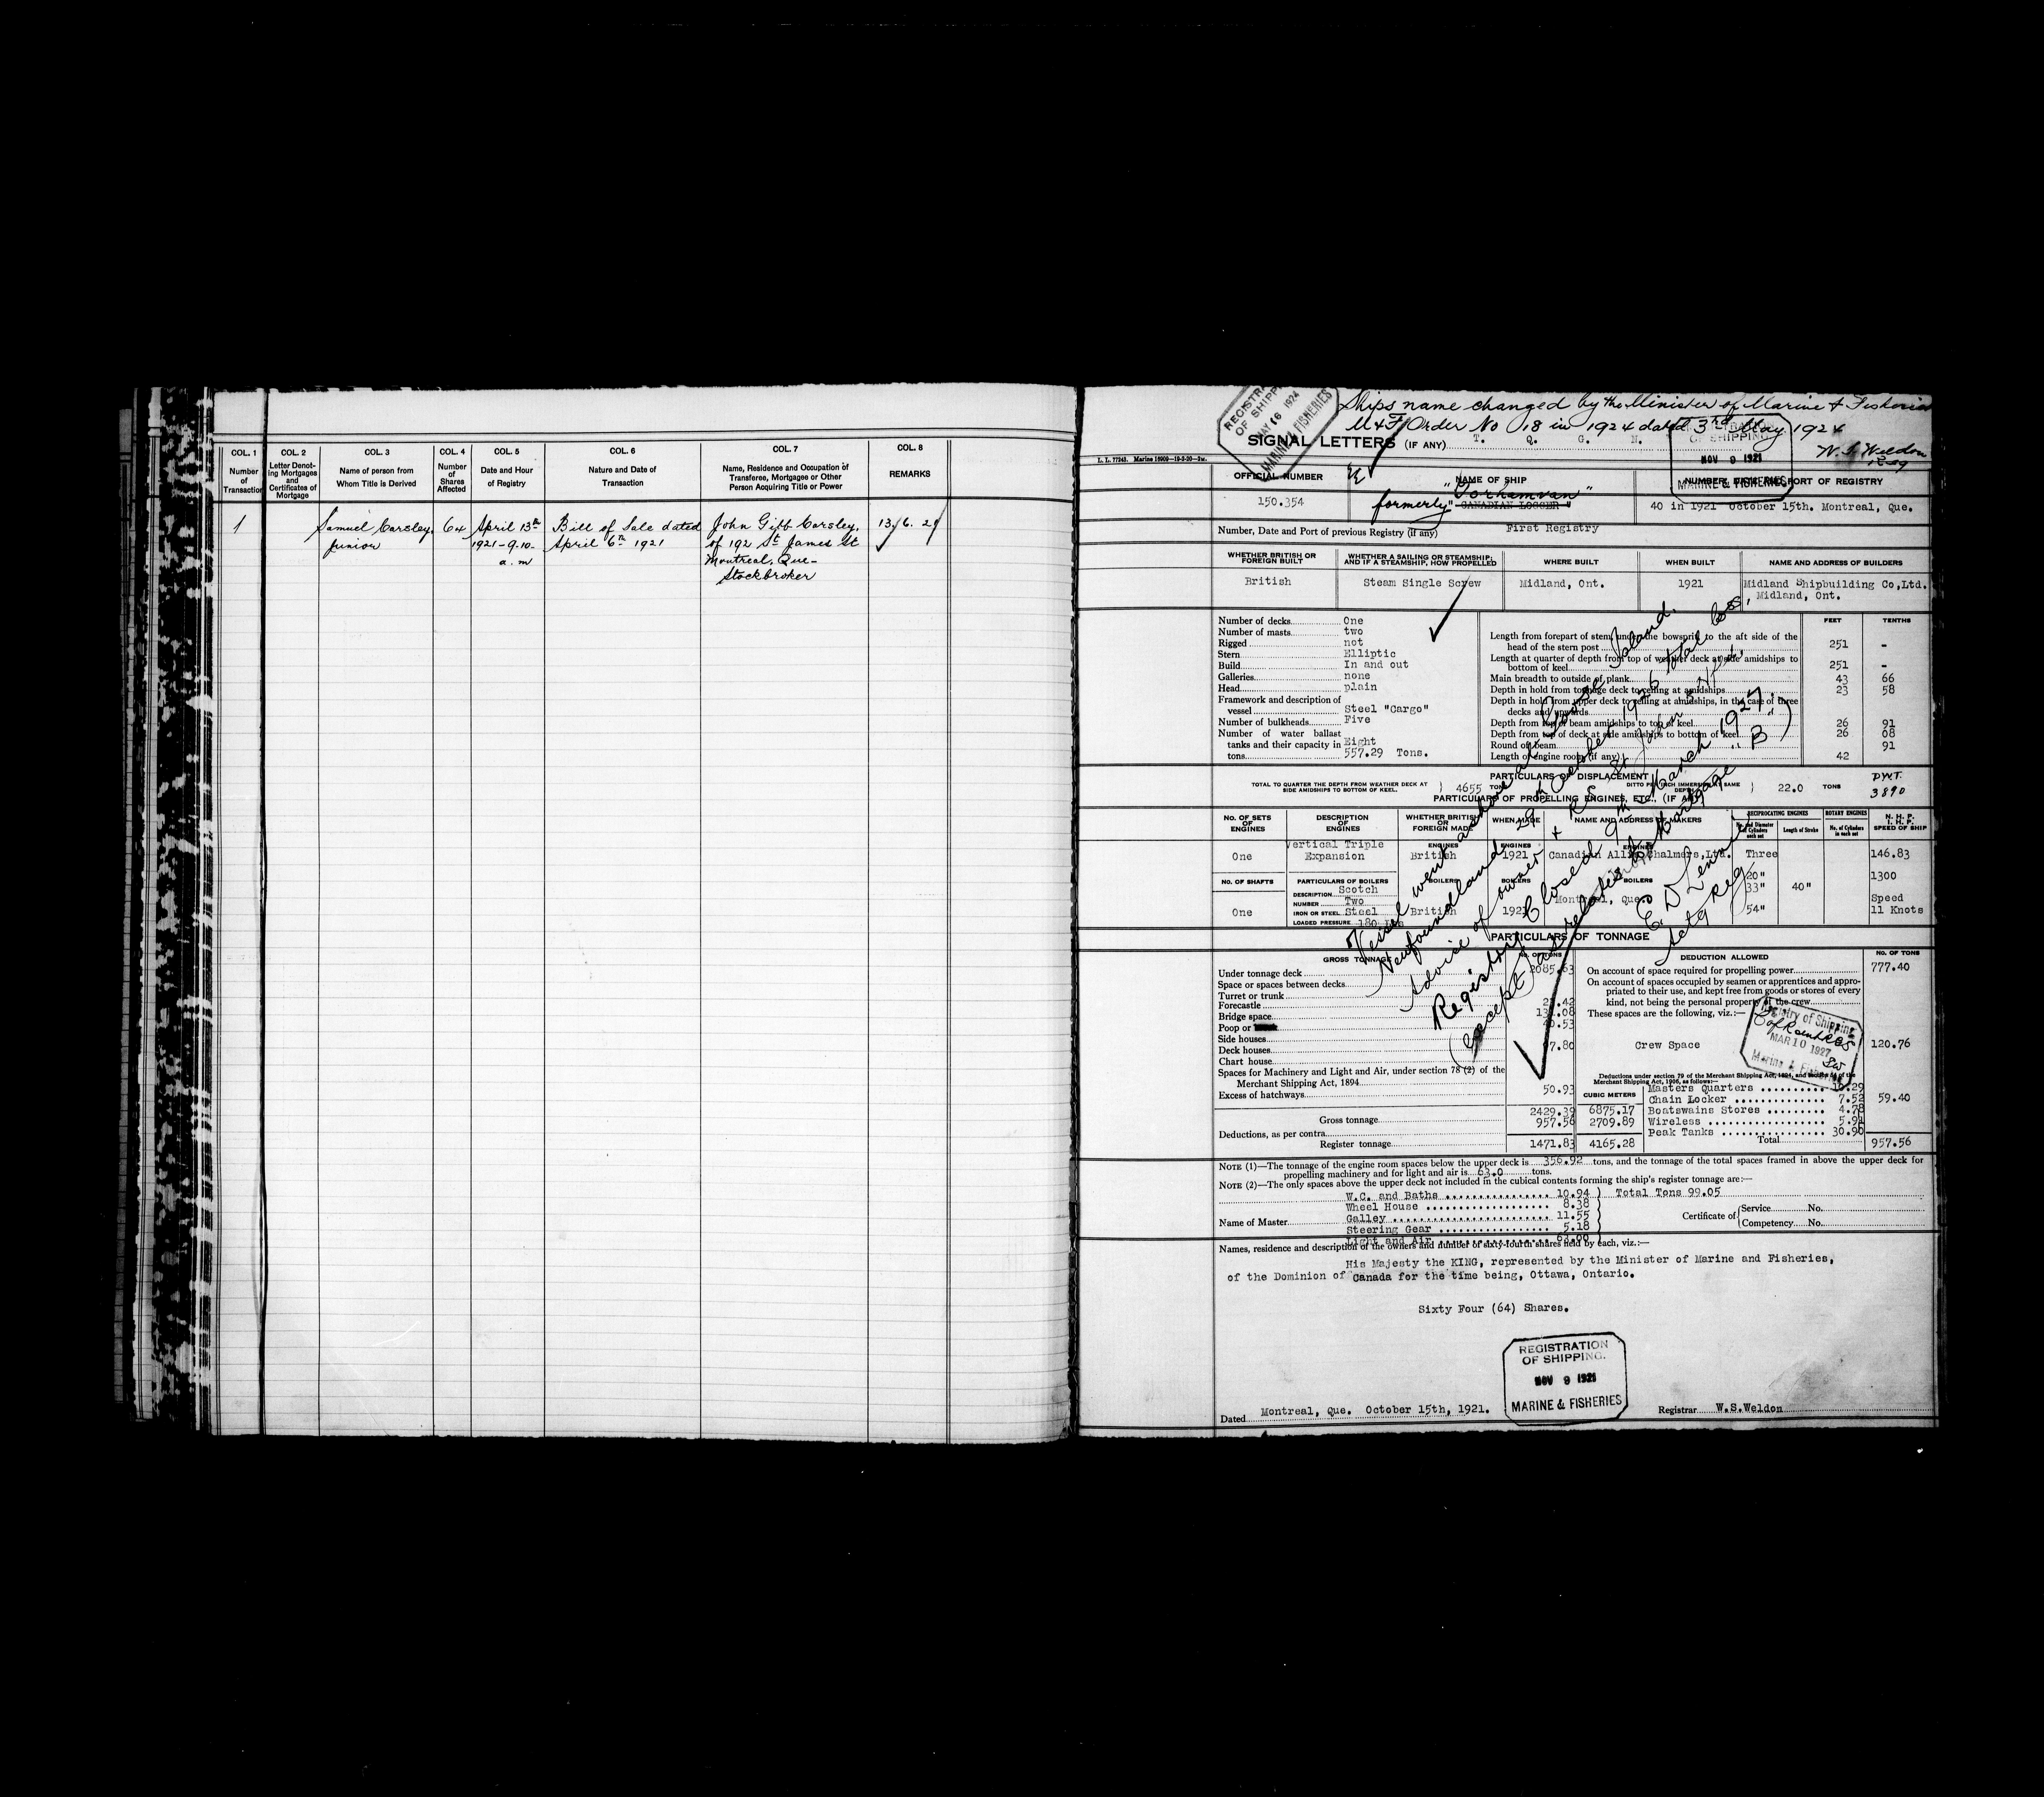 COL. 1
Number
of
Transaction
COL. 2
Letter Denot-
ing Mortgages
and
Certificates of
Mortgage
COL. 3
Name of person from
Whom Title is Derived
COL. 4
Number
of
Shares
Affected
COL. 5
Date and Hour
of Registry
COL. 6
Nature and Date of
Transaction
COL. 7
Name, Residence and Occupation of
Transferee, Mortgagee or Other
Person Acquiring Title or Power
COL. 8
REMARKS
1
Samuel Carsley,
Junior
64
April 13th
1921 - 9.10.
a.m
Bill of Sale dated
April 6th 1921
John Gibb Carsley,
of 192 St James St
Montreal, Que -
Stockbroker
13/6. 21
Ships name changed by the Minister of Marine & Fisheries
M & F Order No 18 in 1924 dated 3rd May 1924
W. S. Weldon
Reg
REGISTRATION
OF SHIPPING
MAY 16 1924
MARINE & FISHERIES
SIGNAL LETTERS (IF ANY) T. Q. G. N.
OF SHIPPING
NOV 9 1921
MARINE & FISHERIES
L. L. 77243. Marine 16909—19-3-20—2M.
OFFICIAL NUMBER
150.354
NAME OF SHIP
"Gorhamvan"
formerly "CANADIAN LOGGER"
NUMBER, DATE AND PORT OF REGISTRY
40 in 1921 October 15th. Montreal, Que.
Number, Date and Port of previous Registry (if any) First Registry
WHETHER BRITISH OR
FOREIGN BUILT
WHETHER A SAILING OR STEAMSHIP;
AND IF A STEAMSHIP, HOW PROPELLED
WHERE BUILT
WHEN BUILT
NAME AND ADDRESS OF BUILDERS
British
Steam Single Screw
Midland, Ont.
1921
Midland Shipbuilding Co,Ltd.
Midland, Ont.
Number of decks One
Number of masts two
Rigged not
Stern Elliptic
Build In and out
Galleries none
Head plain
Framework and description of
vessel Steel "Cargo"
Number of bulkheads Five
Number of water ballast
tanks and their capacity in Eight
tons 557.29 Tons.
FEET TENTHS
Length from forepart of stem, under the bowsprit to the aft side of the
head of the stern post 251 -
Length at quarter of depth from top of weather deck at side amidships to
bottom of keel 251 -
Main breadth to outside of plank 43 66
Depth in hold from tonnage deck to ceiling at amidships 23 58
Depth in hold from upper deck to ceiling at amidships, in the case of three
decks and upwards
Depth from top of beam amidships to top of keel 26 91
Depth from top of deck at side amidships to bottom of keel 26 08
Round of beam 91
Length of engine room (if any) 42
PARTICULARS OF DISPLACEMENT
TOTAL TO QUARTER THE DEPTH FROM WEATHER DECK AT
SIDE AMIDSHIPS TO BOTTOM OF KEEL. 4655 TONS
DITTO PER INCH IMMERSION AT SAME
DEPTH 22.0 TONS
D.W.T.
3890
PARTICULARS OF PROPELLING ENGINES, ETC., (IF ANY)
NO. OF SETS
OF
ENGINES
DESCRIPTION
OF
ENGINES
WHETHER BRITISH
OR
FOREIGN MADE
WHEN MADE
NAME AND ADDRESS OF MAKERS
RECIPROCATING ENGINES
No. and Diameter
of Cylinders
each set
Length of Stroke
ROTARY ENGINES
No. of Cylinders
in each set
N. H. P.
I. H. P.
SPEED OF SHIP
One
Vertical Triple
Expansion
ENGINES
British
ENGINES
1921
ENGINES
Canadian Allis Chalmers,Ltd.
Three
20"
33"
54"
40"
146.83
1300
Speed
11 Knots
NO. OF SHAFTS
One
PARTICULARS OF BOILERS
DESCRIPTION Scotch
NUMBER Two
IRON OR STEEL Steel
LOADED PRESSURE 180
BOILERS
British
BOILERS
1921
BOILERS
Montreal, Que.
Vessel went ashore at Goose Island.
Newfoundland 29th October 1926 total loss,
Advice of owner & R.S. St John's Nfld.
Registry Closed 9th March 1927.
(except as relates to Mortgage "B")
Actg Reg.
PARTICULARS OF TONNAGE
GROSS TONNAGE
NO. OF TONS
Under tonnage deck 2085.63
Space or spaces between decks
Turret or trunk
Forecastle
Bridge space
Poop or
Side houses
Deck houses
Chart house
Spaces for Machinery and Light and Air, under section 78 (2) of the
Merchant Shipping Act, 1894
Excess of hatchways 50.93
Gross tonnage 2429.39 6875.17
Deductions, as per contra 957.56 2709.89
Register tonnage 1471.83 4165.28
CUBIC METERS
DEDUCTION ALLOWED
NO. OF TONS
On account of space required for propelling power 777.40
On account of spaces occupied by seamen or apprentices and appro-
priated to their use, and kept free from goods or stores of every
kind, not being the personal property of the crew
These spaces are the following, viz.:—
Crew Space 120.76
Registry of Shipping
MAR 10 1927
Marine & Fisheries
Deductions under section 79 of the Merchant Shipping Act, 1894, and
Merchant Shipping Act, 1906, as follows:—
Masters Quarters 10.29
Chain Locker 7.52
Boatswains Stores 4.78
Wireless 5.91
Peak Tanks 30.90
59.40
Total 957.56
NOTE (1)—The tonnage of the engine room spaces below the upper deck is 356.92 tons, and the tonnage of the total spaces framed in above the upper deck for
propelling machinery and for light and air is 63.0 tons.
NOTE (2)—The only spaces above the upper deck not included in the cubical contents forming the ship's register tonnage are:—
W.C. and Baths 10.94
Wheel House 8.38
Galley 11.55
Steering Gear 5.18
Light and Air 63.00
Total Tons 99.05
Name of Master
Certificate of
Service No.
Competency No.
Names, residence and description of the owners and number of sixty-fourth shares held by each, viz.:—
His Majesty the KING, represented by the Minister of Marine and Fisheries,
of the Dominion of Canada for the time being, Ottawa, Ontario.
Sixty Four (64) Shares.
REGISTRATION
OF SHIPPING.
NOV 9 1921
MARINE & FISHERIES
Dated Montreal, Que. October 15th, 1921.
Registrar W.S.Weldon